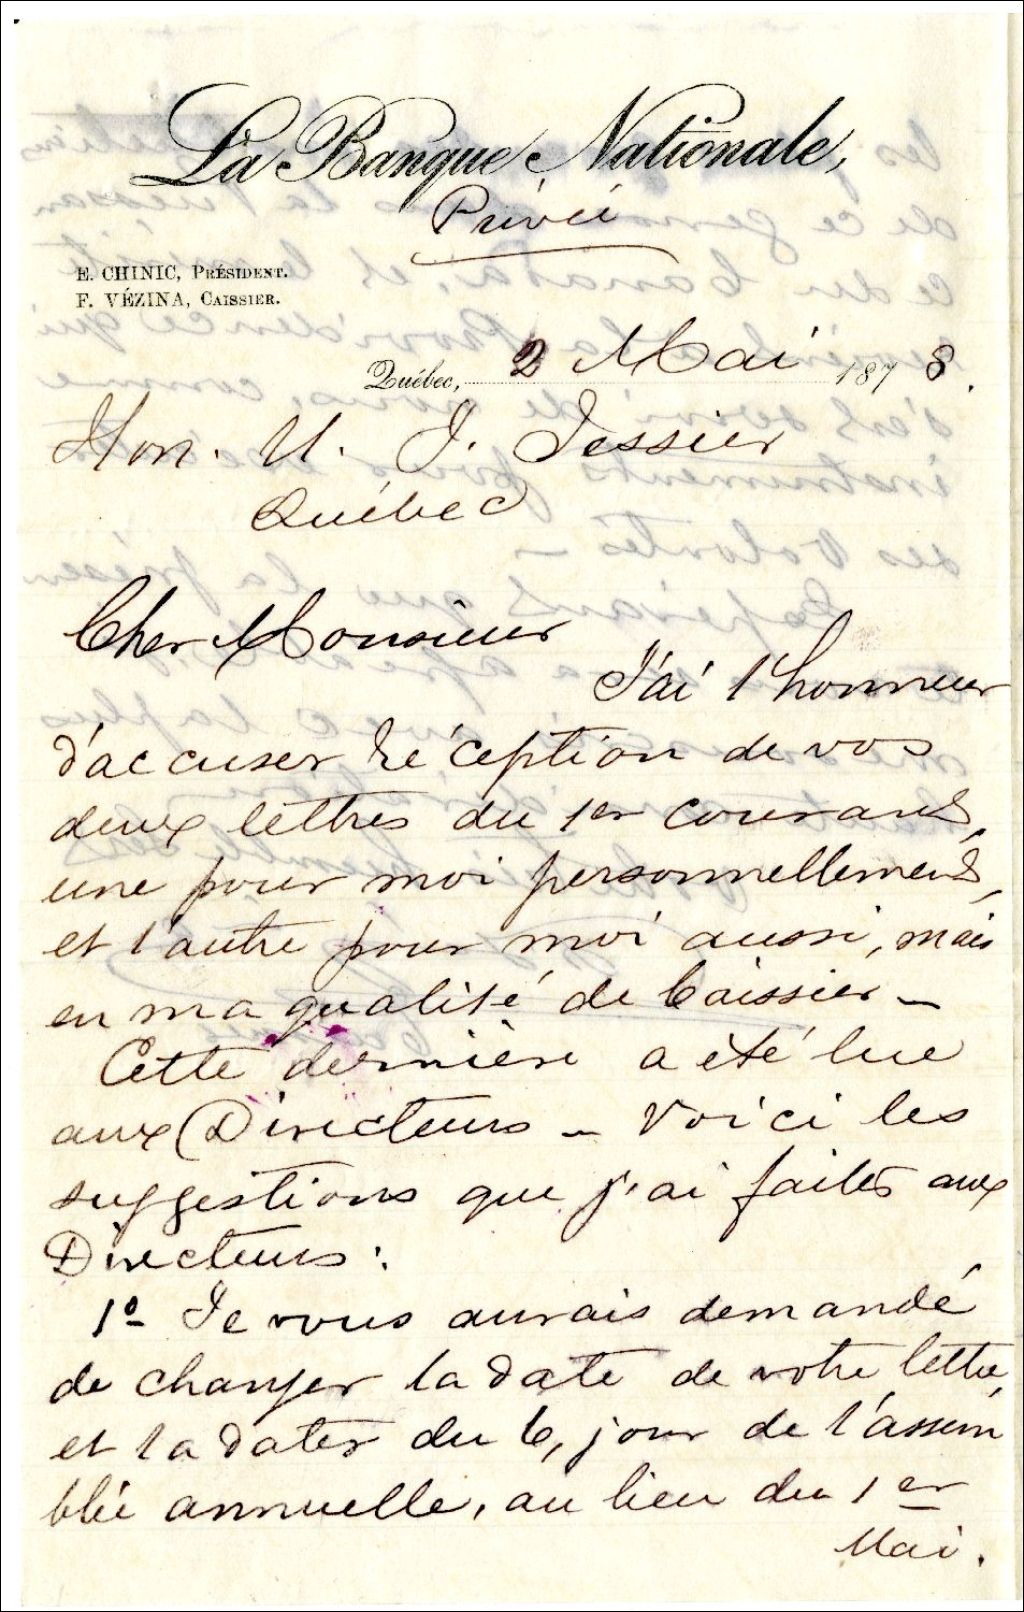 La Banque Nationale,
Privée
E. CHINIC, PRÉSIDENT.
F. VÉZINA, CAISSIER.
Québec, 2 Mai 1878.
Hon. U. J. Tessier
Québec
Cher Monsieur
J'ai l'honneur
d'accuser réception de vos
deux lettres du 1er courant,
une pour moi personnellement,
et l'autre pour moi aussi, mais
en ma qualité de Caissier –
Cette dernière a été lue
aux Directeurs – Voici les
suggestions que j'ai faites aux
Directeurs :
1º Je vous aurais demandé
de changer la date de votre lettre,
et la dater du 6, jour de l'assem
blée annuelle, au lieu du 1er
Mai.